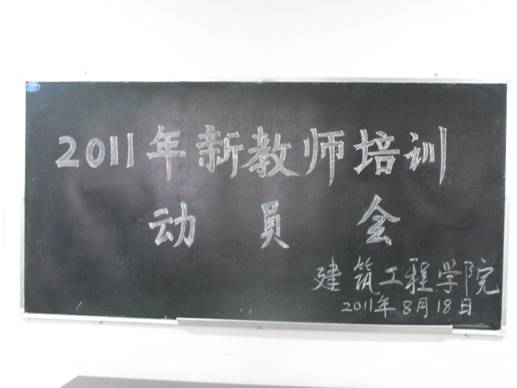 2011年新教师培训
动员会
建筑工程学院
2011年8月18日